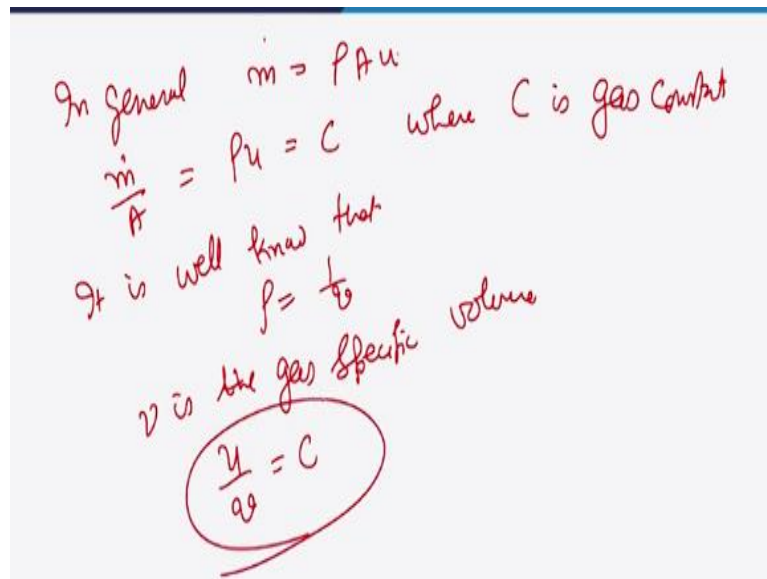 In general ṁ = ρAu
ṁ/A = ρu = C where C is gas Constant
It is well know that
ρ = 1/v
v is the gas specific volume
u/v = C